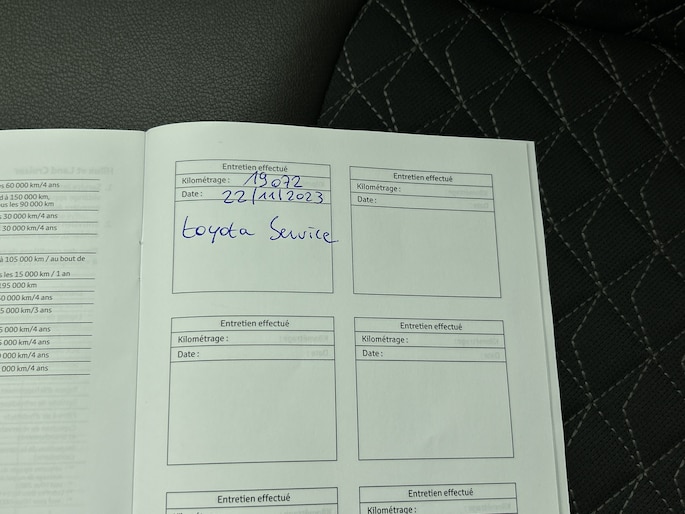 s 60 000 km/4 ans
à 150 000 km,
us les 90 000 km
30 000 km/4 ans
30 000 km/4 ans
à 105 000 km / au bout de
s les 15 000 km / 1 an
195 000 km
0 000 km/4 ans
5 000 km/3 ans
5 000 km/4 ans
000 km/4 ans
000 km/4 ans
000 km/4 ans
Entretien effectué
Kilométrage : 19 072
Date : 22/11/2023
toyota Service
Entretien effectué
Kilométrage :
Date :
Entretien effectué
Kilométrage :
Date :
Entretien effectué
Kilométrage :
Date :
Entretien effectué
Entretien effectué